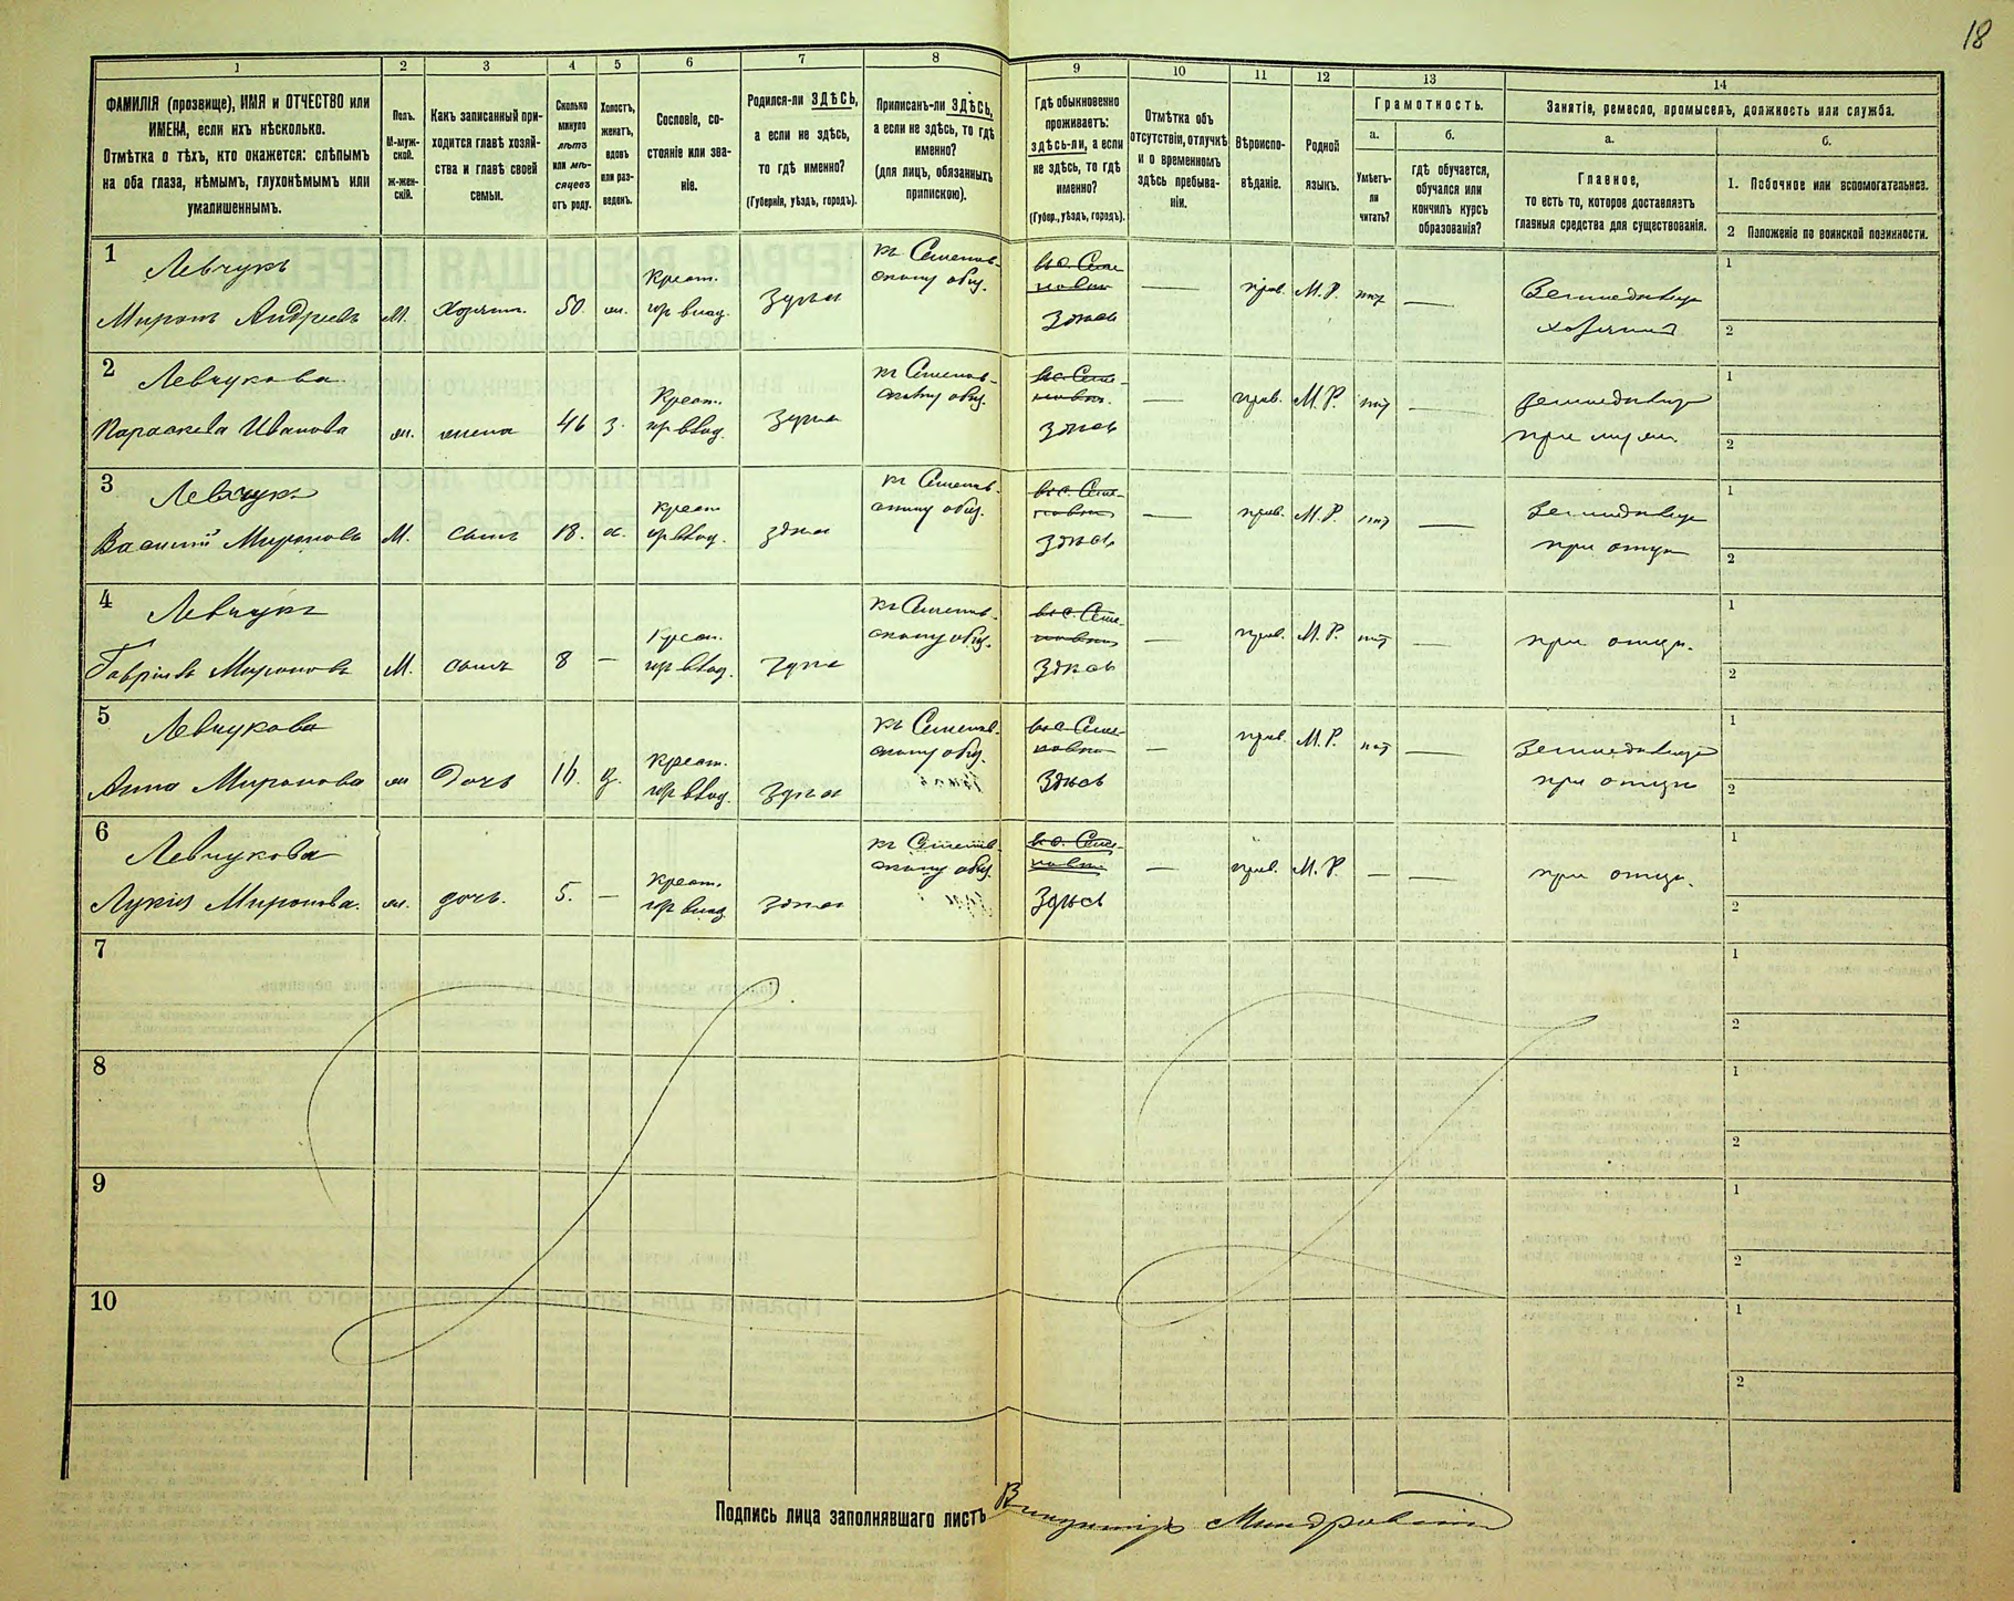 18
1
2
3
4
5
6
7
8
9
10
11
12
13
14
ФАМИЛІЯ (прозвище), ИМЯ и ОТЧЕСТВО или
ИМЕНА, если ихъ нѣсколько.
Отмѣтка о тѣхъ, кто окажется: слѣпымъ
на оба глаза, нѣмымъ, глухонѣмымъ или
умалишеннымъ.
Полъ.
М-муж-
ской.
Ж-жен-
скій.
Какъ записанный при-
ходится главѣ хозяй-
ства и главѣ своей
семьи.
Сколько
минуло
лѣтъ
или мѣ-
сяцевъ
отъ роду.
Холостъ,
женатъ,
вдовъ
или раз-
веденъ.
Сословіе, со-
стояніе или зва-
ніе.
Родился-ли ЗДѢСЬ,
а если не здѣсь,
то гдѣ именно?
(Губернія, уѣздъ, городъ).
Приписанъ-ли ЗДѢСЬ,
а если не здѣсь, то гдѣ
именно?
(для лицъ, обязанныхъ
припискою).
Гдѣ обыкновенно
проживаетъ:
здѣсь-ли, а если
не здѣсь, то гдѣ
именно?
(Губер., уѣздъ, городъ).
Отмѣтка объ
отсутствіи, отлучкѣ
и о временномъ
здѣсь пребыва-
ніи.
Вѣроиспо-
вѣданіе.
Родной
языкъ.
Грамотность.
а.
б.
Умѣетъ-
ли
читать?
гдѣ обучается,
обучался или
кончилъ курсъ
образованія?
Занятіе, ремесло, промыселъ, должность или служба.
а.
б.
Главное,
то есть то, которое доставляетъ
главныя средства для существованія.
1. Побочное или вспомогательное.
2 Положеніе по воинской повинности.
1
Левчукъ
Миронъ Андреевъ
М.
Хозяин.
50.
ж.
Крест.
здѣсь
къ Семенов-
скому общ.
въ с. Семе-
новки
Здѣсь
—
прав.
М.Р.
нѣт
—
Земледѣлец
хозяинъ
1
2
2
Левчукова
Параскева Иванова
ж.
жена
46
з.
Крест.
здѣсь
къ Семенов-
скому общ.
въ с. Семе-
новки.
Здѣсь
—
прав.
М.Р.
нѣт
—
Земледѣлец
при муже.
1
2
3
Левчукъ
Василій Мироновъ
М.
сынъ
18.
х.
крест
здѣсь
къ Семенов-
скому общ.
въ с. Семе-
новки
Здѣсь
—
прав.
М.Р.
нѣт
—
Земледѣлец
при отцѣ
1
2
4
Левчукъ
Гавріилъ Мироновъ
М.
сынъ
8
—
Крест.
здѣсь
къ Семенов-
скому общ.
въ с. Семе-
новки
Здѣсь
—
прав.
М.Р.
нѣт
—
при отцѣ.
1
2
5
Левчукова
Анна Миронова
ж
Дочь
16.
д.
Крест.
здѣсь
къ Семенов-
скому общ.
въ с. Семе-
новки
Здѣсь
—
прав.
М.Р.
нѣт
—
Земледѣлец
при отцѣ
1
2
6
Левчукова
Лукія Миронова.
ж.
дочь.
5.
—
Крест.
здѣсь
къ Семенов-
скому общ.
въ с. Семе-
новки
Здѣсь
—
прав.
М.Р.
—
—
при отцѣ.
1
2
7
1
2
8
1
2
9
1
2
10
1
2
Подпись лица заполнявшаго листъ